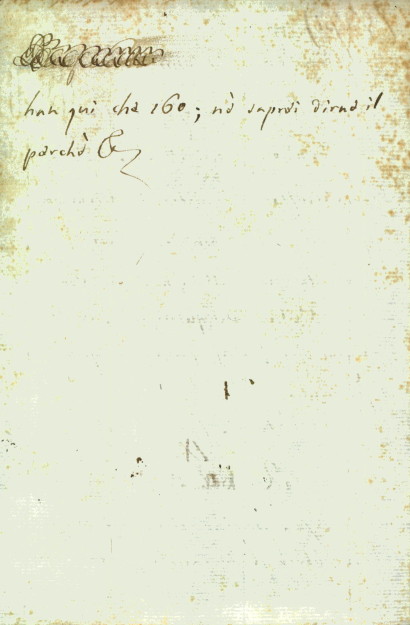 han qui che 160; nè saprei dirne il
perchè &c